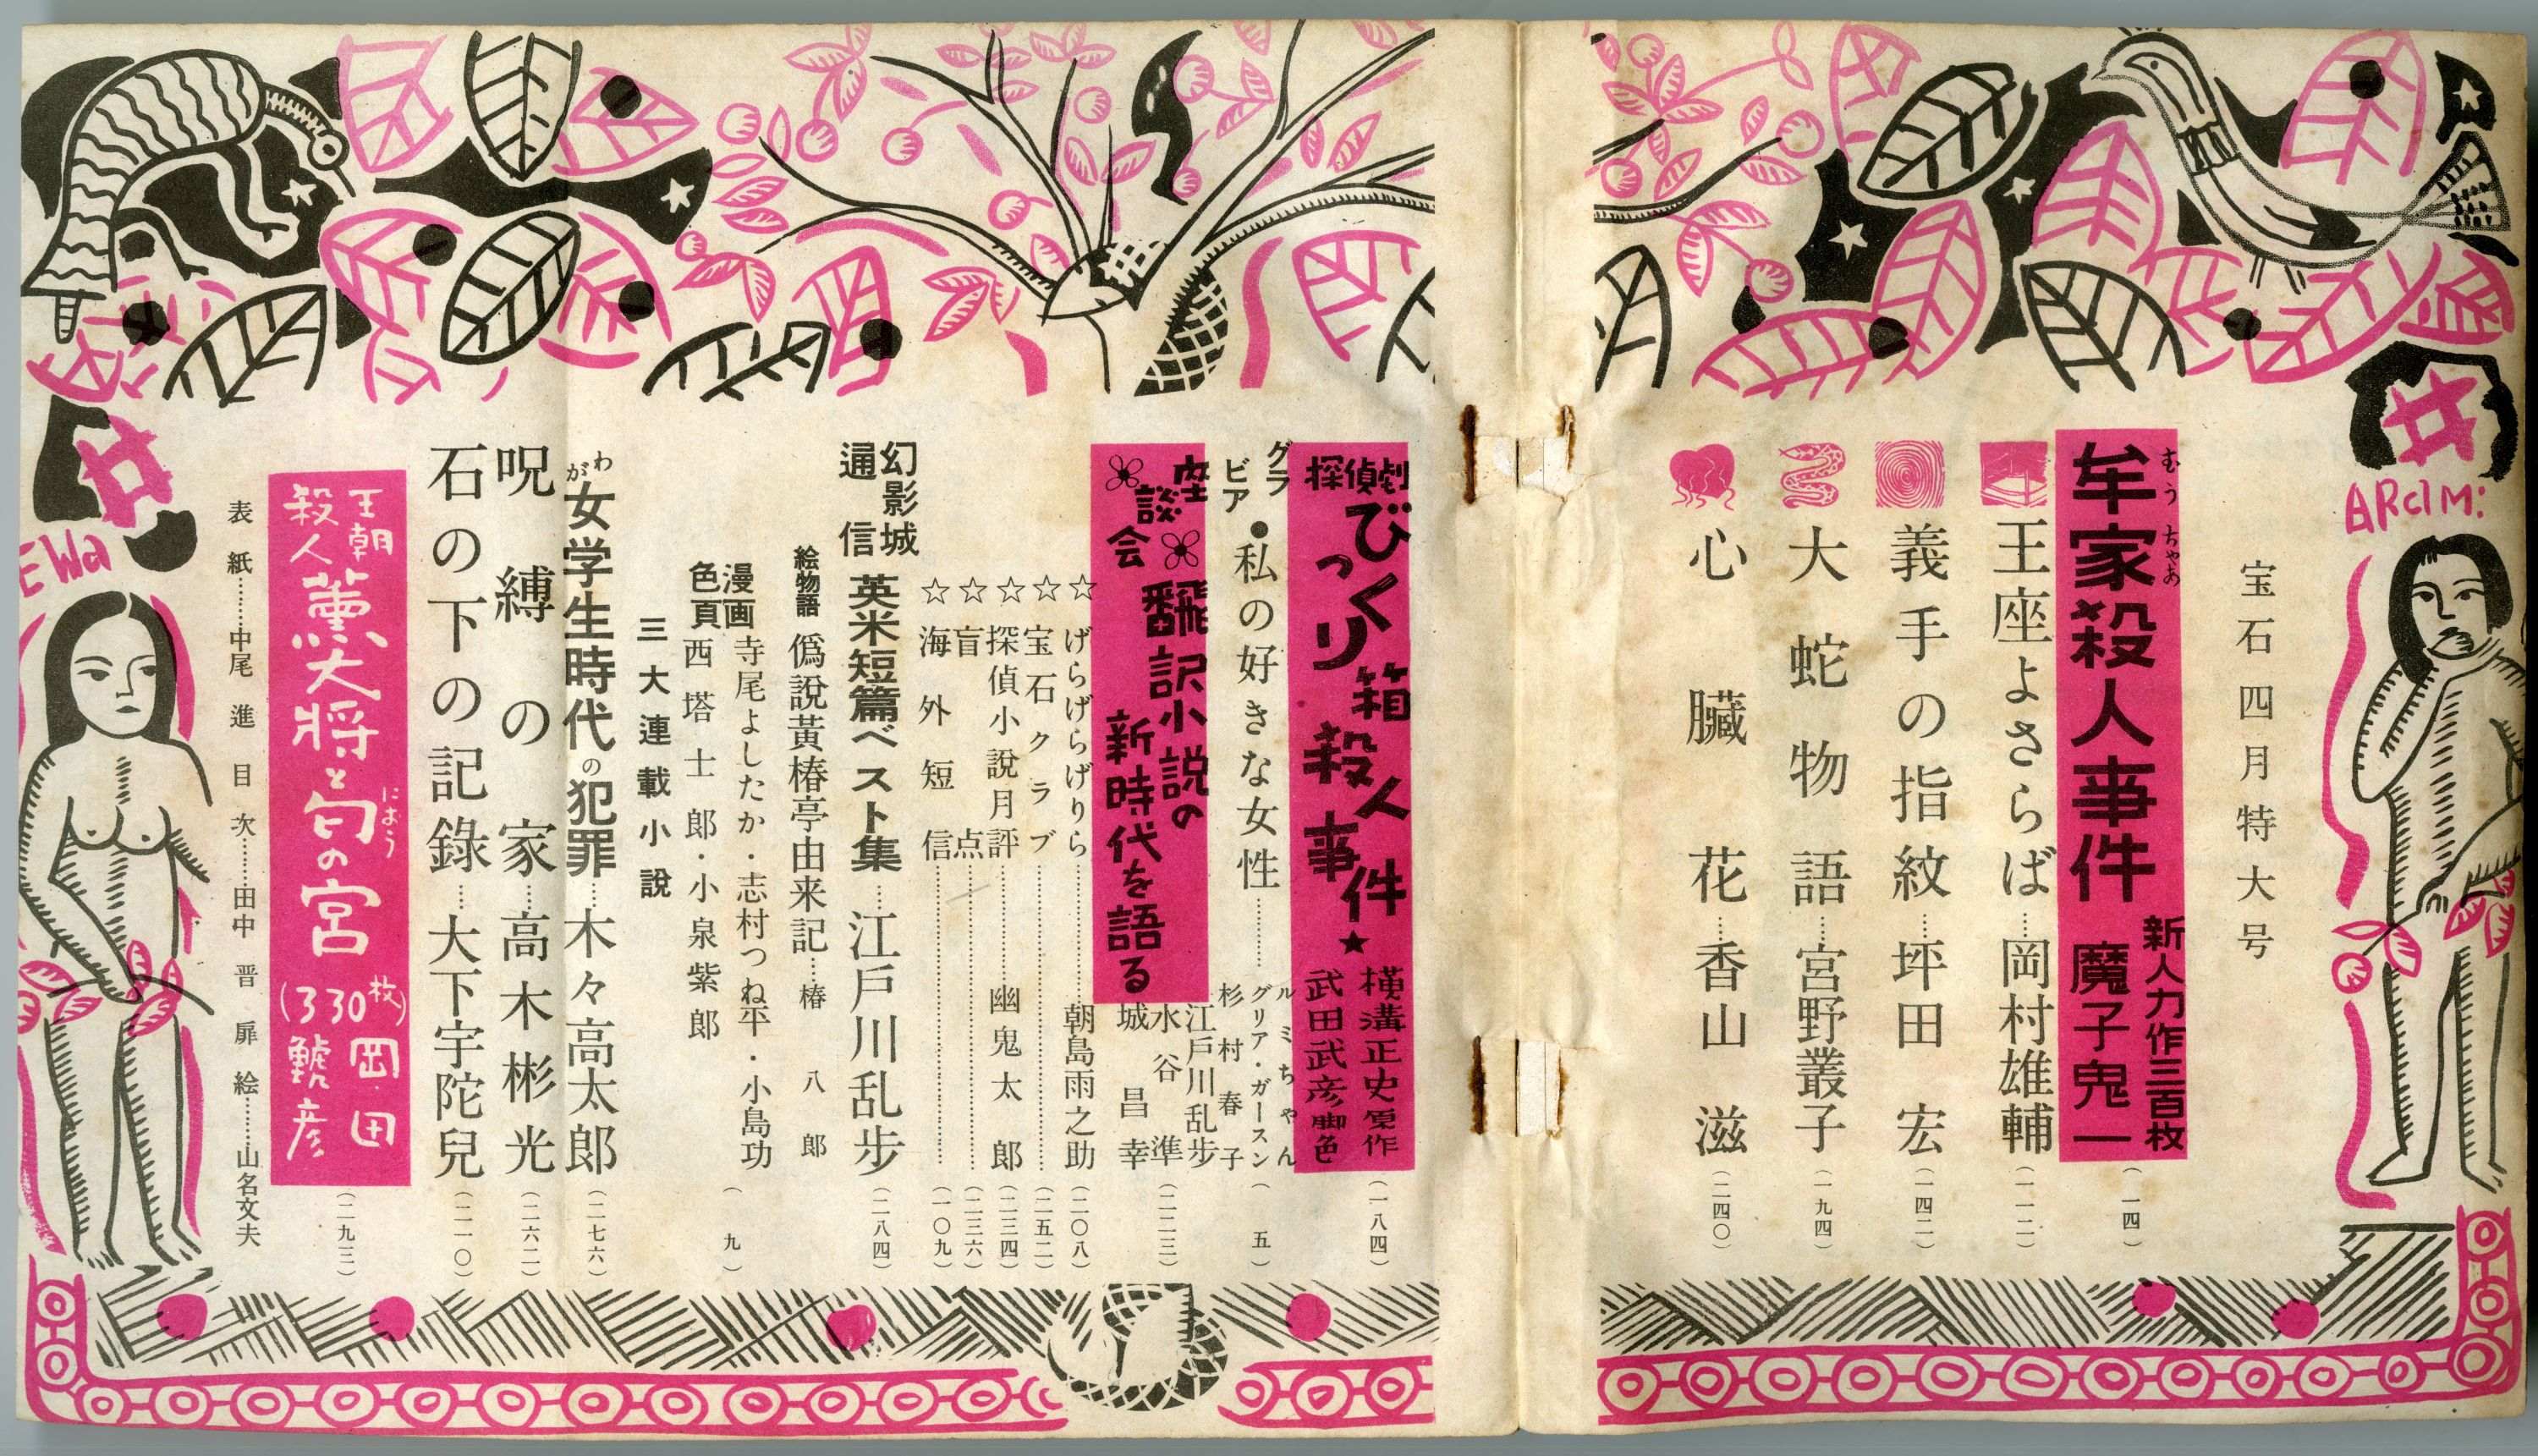 ARdM:
宝石四月特大号
牟家殺人事件 新人力作三百枚 魔子鬼一 (一四)
むう ちゃあ
王座よさらば……岡村雄輔 (一一二)
義手の指紋……坪田宏 (一四二)
大蛇物語……宮野叢子 (一九四)
心臓花……香山滋 (二四〇)
探偵劇 びっくり箱殺人事件★ 横溝正史原作 武田武彦脚色 (一八四)
グラビア●私の好きな女性………… ルミちゃん グリア・ガースン 杉村春子 (五)
座談会 飜訳小説の新時代を語る 江戸川乱歩 水谷準 城昌幸 (二二三)
☆げらげらげりら…………朝島雨之助 (二〇八)
☆宝石クラブ………… (二五二)
☆探偵小説月評…………幽鬼太郎 (二三四)
☆盲点………… (二三六)
☆海外短信………… (一〇九)
幻影城通信 英米短篇ベスト集……江戸川乱歩 (二八四)
絵物語 偽説黃椿亭由来記……椿八郎
漫画色頁 寺尾よしたか・志村つね平・小島功 西塔士郎・小泉紫郎 (九)
三大連載小説
わが女学生時代の犯罪……木々高太郎 (二七六)
呪縛の家……高木彬光 (二六二)
石の下の記錄……大下宇陀兒 (二一〇)
王朝殺人 薫大将と匂の宮 (330枚) 岡田鯱彦 (二九三)
にほう
表紙…………中尾進 目次…………田中晋 扉絵…………山名文夫
EWa